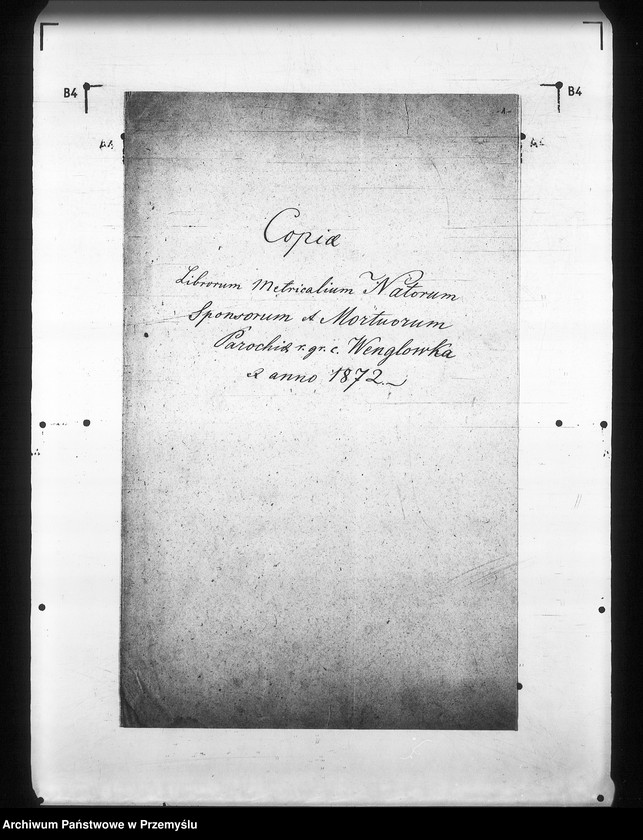 B4
B4
-1-
A4
A4
Copiæ
Librorum Metricalium Natorum
Sponsorum et Mortuorum
Parochiæ r. gr. c. Wenglowka
anno 1872
Archiwum Państwowe w Przemyślu